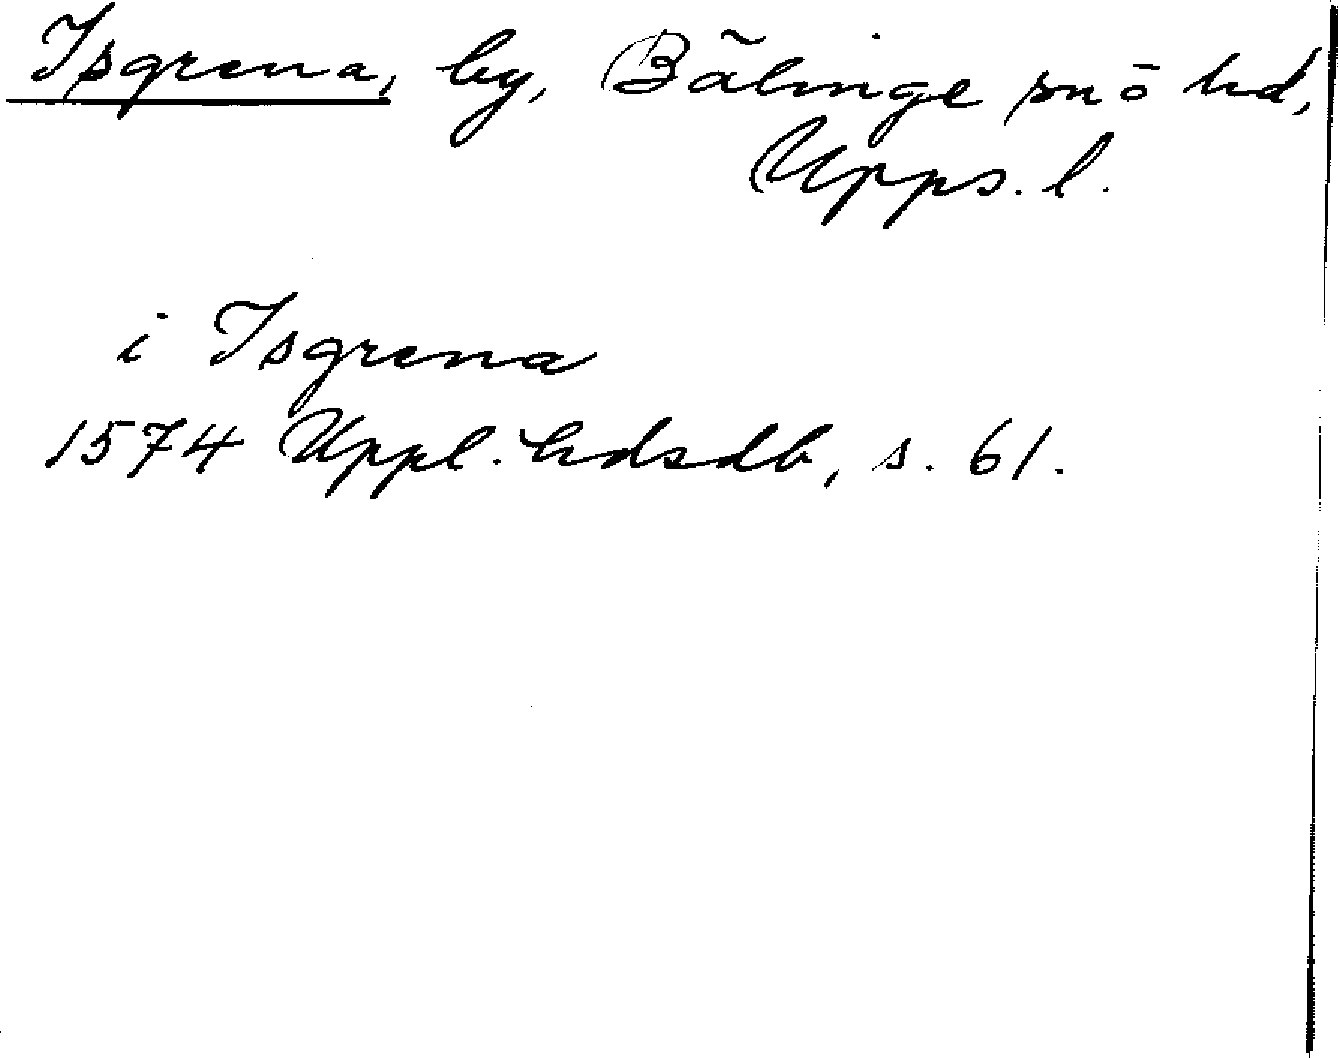 Isgrena, by, Bälinge sn o hd,
Upps. l.
i Isgrena
1574 Uppl. hdsdb, s. 61.